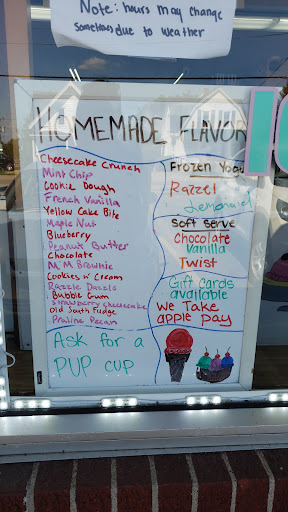 Note: hours may change
sometimes due to weather
HOMEMADE FLAVOR
Cheesecake Crunch
Mint Chip
Cookie Dough
French Vanilla
Yellow Cake Bite
Maple Nut
Blueberry
Peanut Butter
Chocolate
M.M. Brownie
Cookies n' Cream
Razzle Dazzle
Bubble Gum
Strawberry Cheesecake
Old South Fudge
Praline Pecan
Ask for a
PUP CUP
Frozen Yogu
Razzel
Lemonade
Soft Serve
Chocolate
Vanilla
Twist
Gift Cards
available
We Take
apple pay